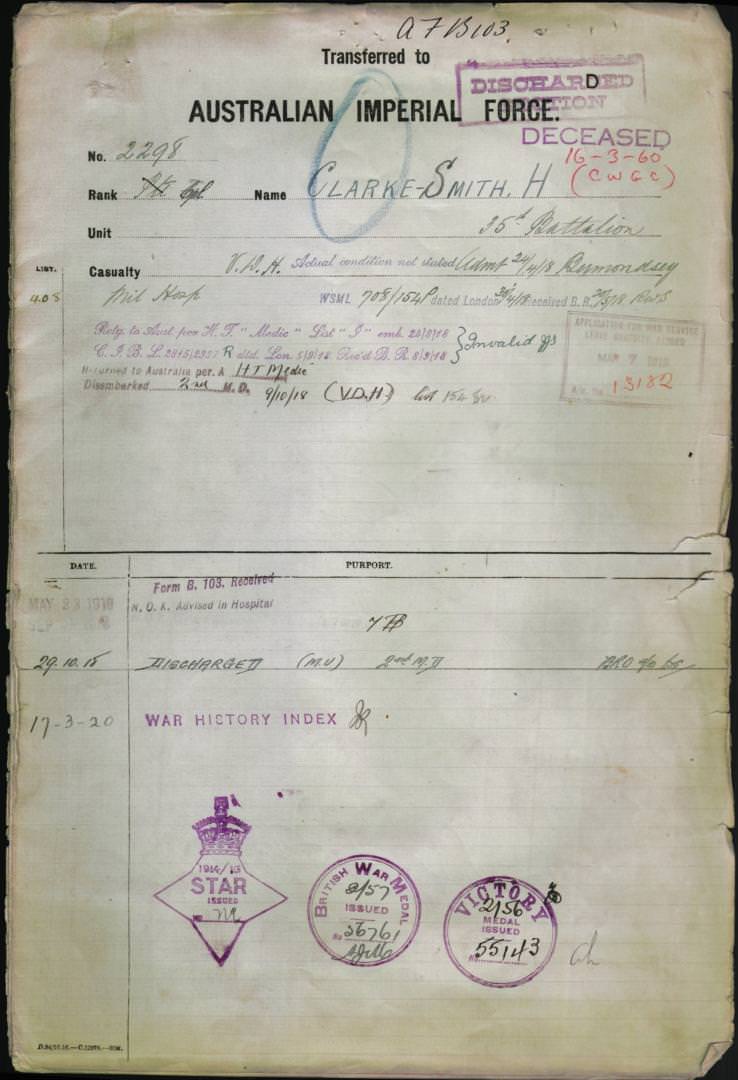 A F B103.
Transferred to
DISCHARGED
AUSTRALIAN IMPERIAL FORCE.
DECEASED
16-3-60
(CWGC)
No. 2298
Rank Pte Cpl Name CLARKE-SMITH. H
Unit 35th Battalion
LIST.
Casualty V.D.H. Actual condition not stated Admt 24/4/18 Bermondsey
408 Mil Hosp WSML 708/154P dated London 30/4/18 Received B.R.
Retg. to Aust. per H. T. " Medic " List " I " emb. 24/8/18
C. I. B. L. R dtd. Lon. 5/9/18 Rec'd B. R. 8/9/18 } Invalid
Returned to Australia per. A HT Medic
Disembarked 2nd M. D. 9/10/18 (V.D.H.)
APPLICATION FOR WAR SERVICE
MAR 7 1919
13182
DATE. PURPORT.
Form B. 103. Received
MAY 23 1918
N. O. K. Advised in Hospital
29.10.18 DISCHARGED (M.U) 2nd M.D
17-3-20 WAR HISTORY INDEX
1914/15
STAR
ISSUED
No
BRITISH WAR MEDAL
2/57
ISSUED
No 56761
VICTORY
2/56
MEDAL
ISSUED
No 55143